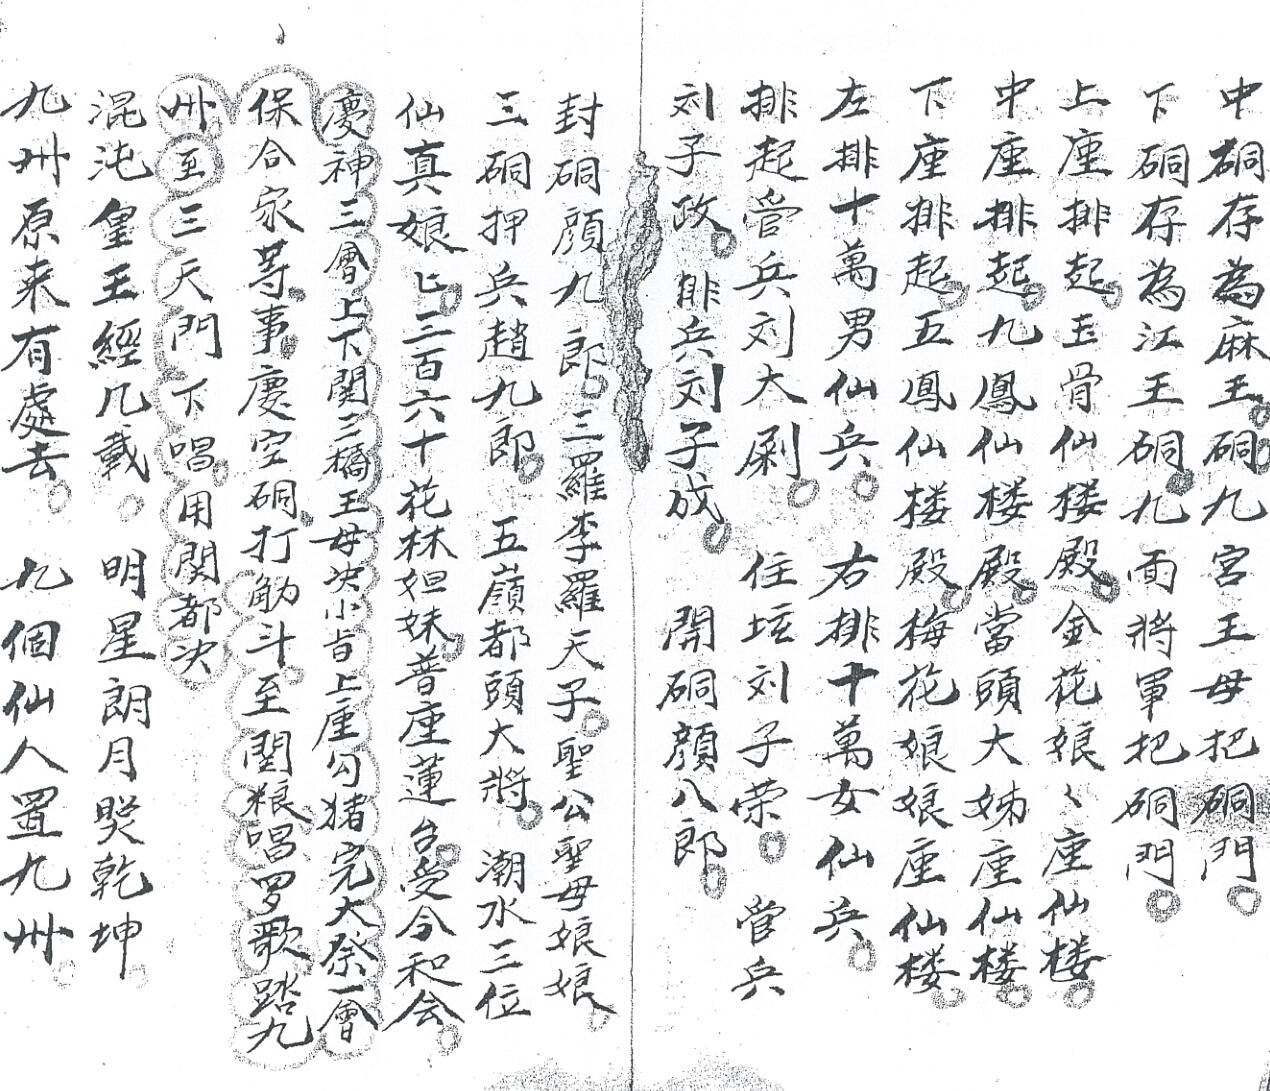 中硐存為麻王硐九宮王母把硐門
下硐存為江王硐九面將軍把硐門
上座排起玉骨仙楼殿金花娘〻座仙楼
中座排起九鳳仙楼殿當頭大姊座仙楼
下座排起五鳳仙楼殿梅花娘娘座仙楼
左排十萬男仙兵 右排十萬女仙兵
排起管兵刘大 住坛刘子荣 管兵
刘子政 排兵刘子成 開硐顔八郎
封硐顔九郎 三羅李羅天子聖公聖母娘娘
三硐押兵趙九郎 五嶺都頭大將 潮水三位
仙真娘〻三百六十花林姐妹普座蓮台受今和会
慶神三會上下関三橋王母决小旨上座勾猪完大祭一會
保合家等事慶空硐打觔斗至閏粮唱罗歌踏九
州至三天門下唱用関都决
混沌皇王經几載 明星朗月照乾坤
九州原来有處去 九個仙人置九州